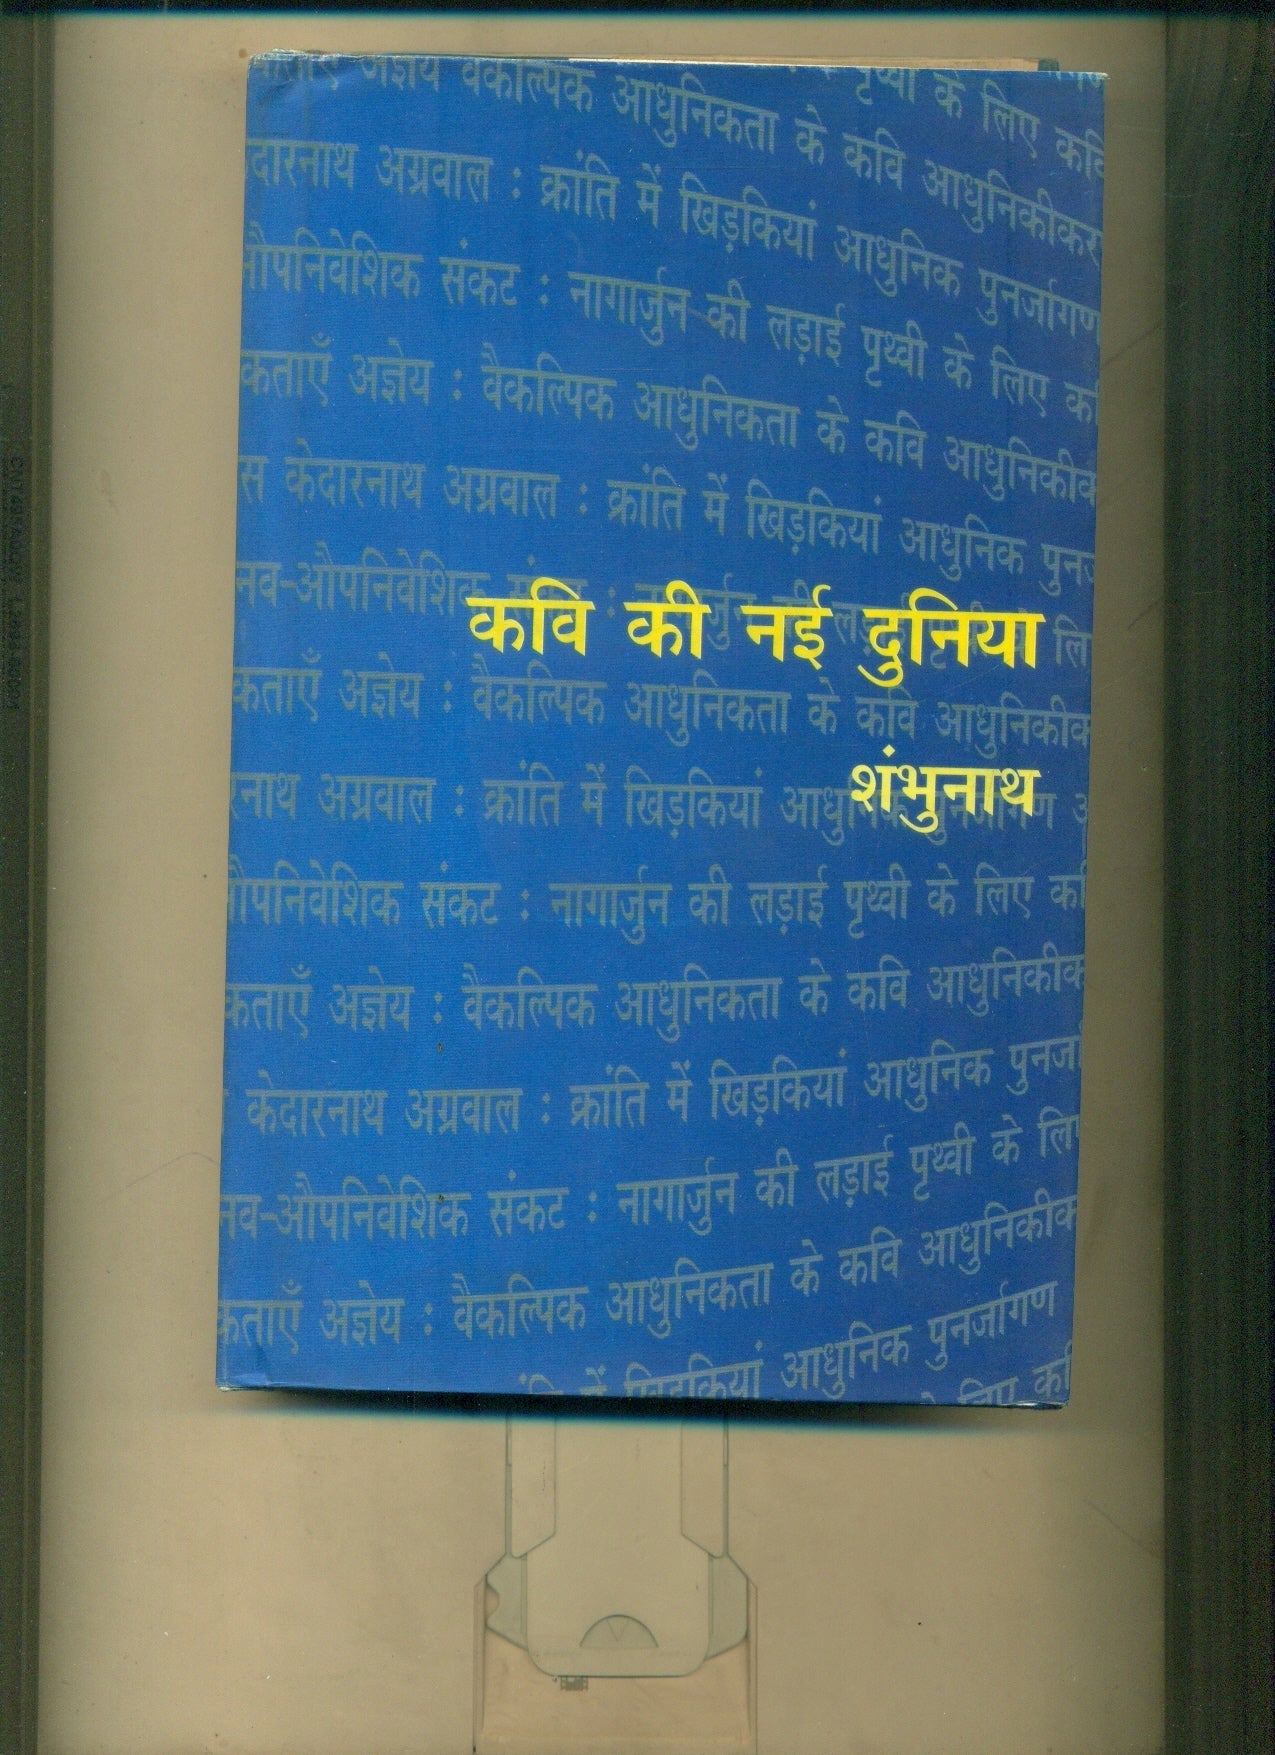 अज्ञेय वैकल्पिक आधुनिकता के कवि आधुनिकीकर
पृथ्वी के लिए कवि
दारनाथ अग्रवाल : क्रांति में खिड़कियां आधुनिक पुनर्जागण
औपनिवेशिक संकट : नागार्जुन की लड़ाई पृथ्वी के लिए कवि
कताएँ अज्ञेय : वैकल्पिक आधुनिकता के कवि आधुनिकीक
स केदारनाथ अग्रवाल : क्रांति में खिड़कियां आधुनिक पुनज
नव-औपनिवेशिक संकट : नागार्जुन की लड़ाई पृथ्वी के लि
कवि की नई दुनिया
कताएँ अज्ञेय : वैकल्पिक आधुनिकता के कवि आधुनिकीक
शंभुनाथ
रनाथ अग्रवाल : क्रांति में खिड़कियां आधुनिक पुनर्जागण
औपनिवेशिक संकट : नागार्जुन की लड़ाई पृथ्वी के लिए कवि
कताएँ अज्ञेय : वैकल्पिक आधुनिकता के कवि आधुनिकीक
केदारनाथ अग्रवाल : क्रांति में खिड़कियां आधुनिक पुनर्जा
नव-औपनिवेशिक संकट : नागार्जुन की लड़ाई पृथ्वी के लिए
कताएँ अज्ञेय : वैकल्पिक आधुनिकता के कवि आधुनिकीक
में खिड़कियां आधुनिक पुनर्जागण
के लिए कवि